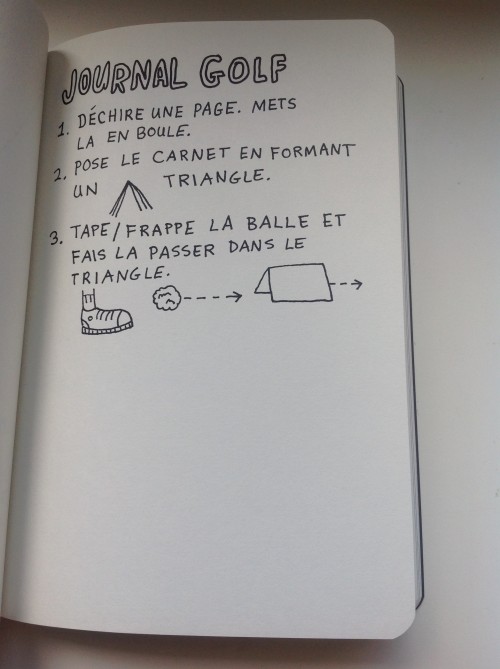 JOURNAL GOLF
1. DÉCHIRE UNE PAGE. METS
LA EN BOULE.
2. POSE LE CARNET EN FORMANT
UN TRIANGLE.
3. TAPE/FRAPPE LA BALLE ET
FAIS LA PASSER DANS LE
TRIANGLE.